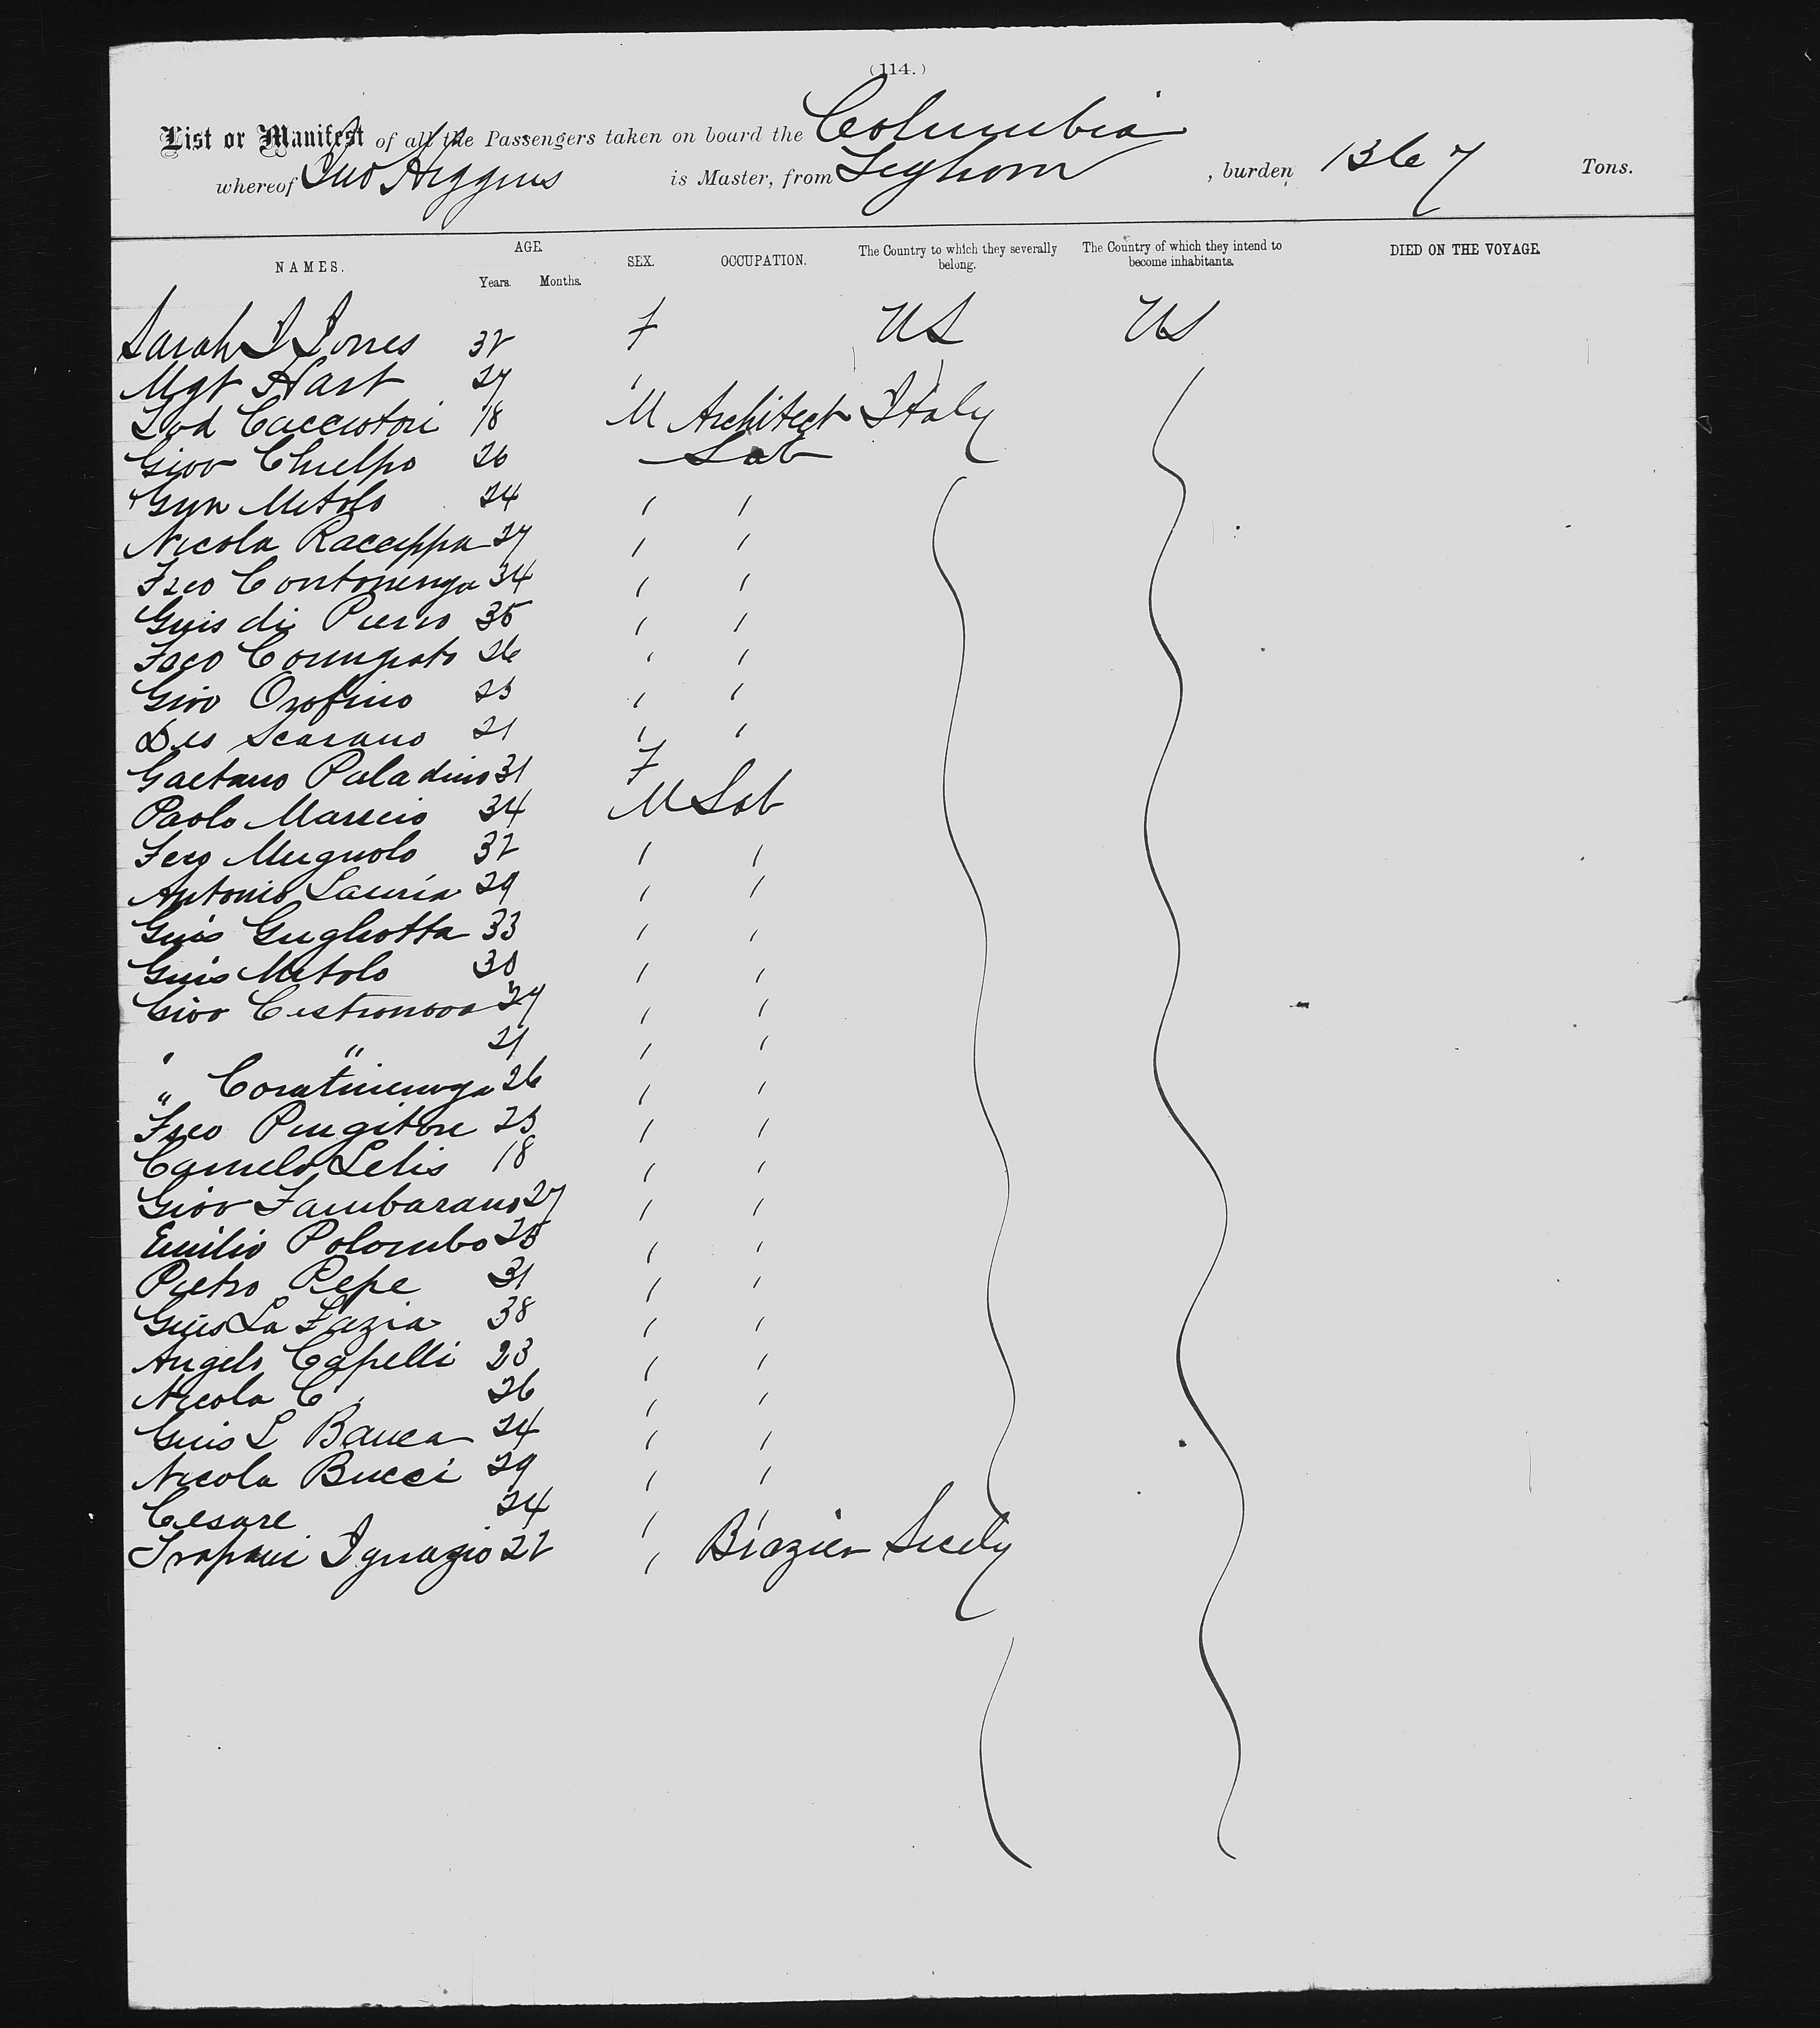 (114.)
List or Manifest of all the Passengers taken on board the Columbia
whereof Jno Higgins is Master, from Leghorn , burden 1367 Tons.
NAMES. AGE. Years. Months. SEX. OCCUPATION. The Country to which they severally belong. The Country of which they intend to become inhabitants. DIED ON THE VOYAGE.
Sarah J Jones 32 F US US
Mgt Hart 27 "
Lod Cacciatori 18 M Architect Italy
Giov Chielpo 26 Lab
Metolo 24 " "
Nicola Raceppa 27 " "
Fsco 34 " "
Guis di Pierro 35 " "
Fsco 26 " "
Giov Orofino 23 " "
Scarano 21 " "
Gaetano Paladino 31 F
Paolo 34 M Lab
Mugnolo 32 " "
Antonio Lauria 29 " "
Guis Gugliotta 33 " "
Guis Metolo 30 " "
Giov Cestronova 27 " "
" " 21 " "
" 26 " "
Fsco Pingitore 23 " "
Camelo Lelis 18 " "
Giov Fambarano 27 " "
Emilio Polombo 25 " "
Pietro Pepe 31 " "
Guis La Fazia 38 " "
Angelo Capelli 23 " "
Nicola C 26 " "
Guis L Banca 24 " "
Nicola Bucci 29 " "
Cesare 24 " "
Trapani Ignazio 22 " Brazier Sicily